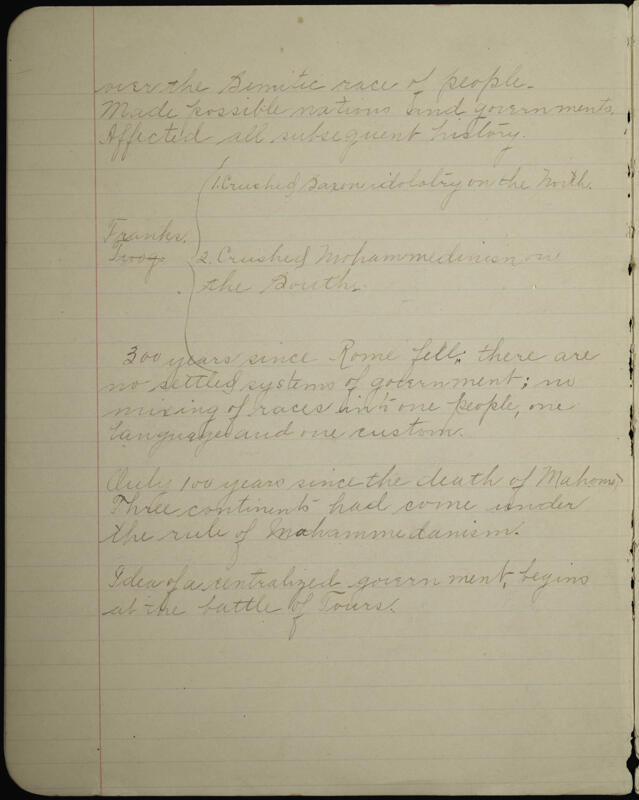 over the Semitic race of people.
Made possible nations and governments.
Affected all subsequent history.
1. Crushed Saxon idolatry on the North.
Franks.
2. Crushed Mohammedinism on
the South.
300 years since Rome fell; there are
no settled systems of government; no
mixing of races into one people, one
language and one custom.
Only 100 years since the death of Mahomet
Three continents had come under
the rule of Mohammedanism.
Idea of a centralized government, begins
at the battle of Tours.